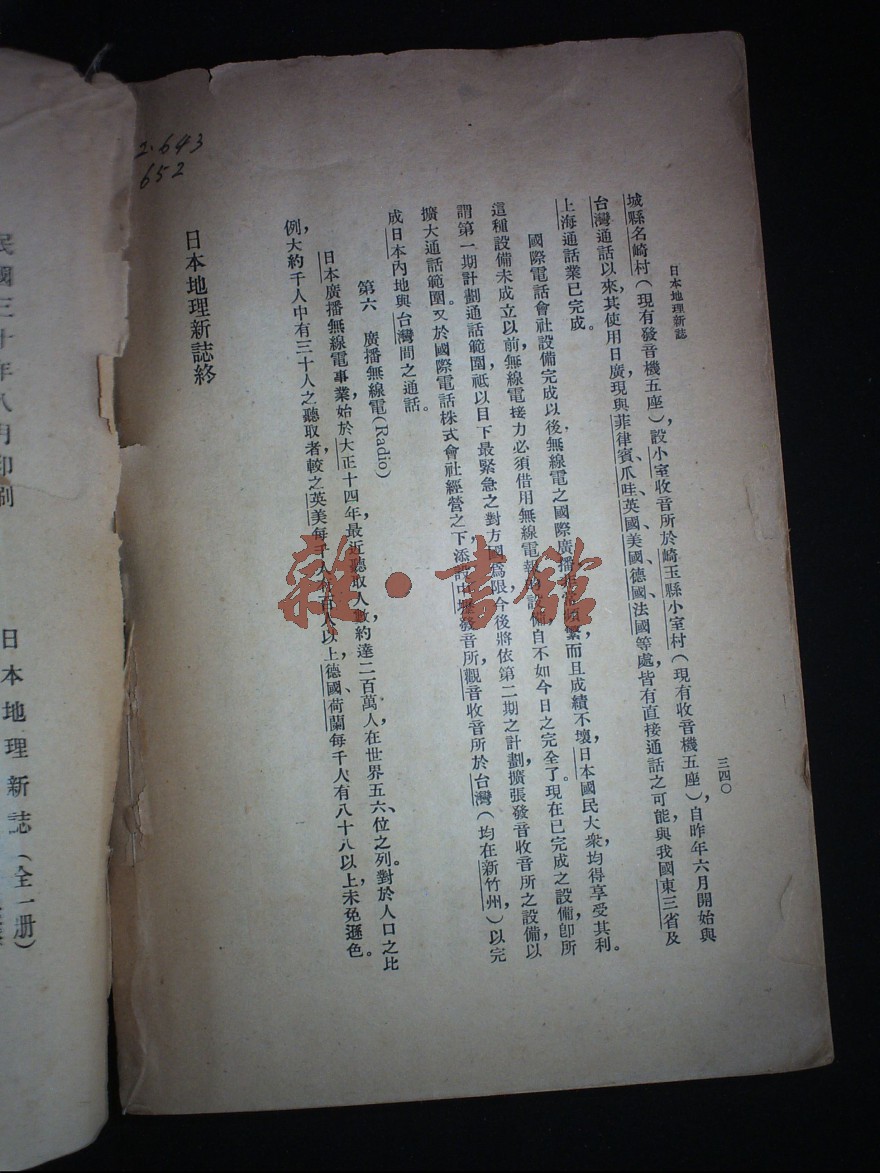 日本地理新誌
三四〇
城縣名崎村(現有發音機五座),設小室收音所於崎玉縣小室村(現有收音機五座),自昨年六月開始與
台灣通話以來,其使用日廣,現與菲律賓、爪哇、英國、美國、德國、法國等處,皆有直接通話之可能,與我國東三省及
上海通話業已完成。
國際電話會社設備完成以後,無線電之國際廣播非常頻繁,而且成績不壞,日本國民大衆,均得享受其利。
這種設備未成立以前,無線電接力必須借用無線電報的設備,自不如今日之完全了。現在已完成之設備,即所
謂第一期計劃通話範圍,祇以目下最緊急之對方國爲限,今後將依第二期之計劃,擴張發音收音所之設備,以
擴大通話範圍。又於國際電話株式會社經營之下,添設中壢發音所,觀音收音所於台灣(均在新竹州)以完
成日本內地與台灣間之通話。
第六 廣播無線電(Radio)
日本廣播無線電事業,始於大正十四年,最近聽取人數約達二百萬人,在世界五六、位之列。對於人口之比
例,大約千人中有三十人之聽取者,較之英美每千人有百人以上,德國、荷蘭每千人有八十八以上,未免遜色。
日本地理新誌終
2.643
652
民國三十年八月印刷
日本地理新誌(全一册)
雜·書館